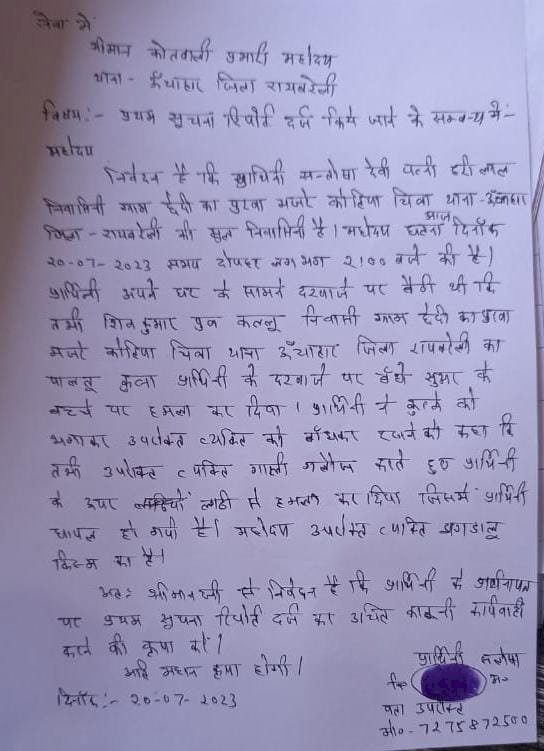 सेवा में
श्रीमान कोतवाली प्रभारी महोदय
थाना - ऊँचाहार जिला रायबरेली
विषय:- प्रथम सुचना रिपोर्ट दर्ज किये जाने के सम्बन्ध में:-
महोदय
निवेदन है कि प्रार्थिनी सन्तोषा देवी पत्नी हरी लाल
निवासिनी ग्राम हेदी का पुरवा मजरे कोटिया चित्रा थाना - ऊँचाहार
जिला - रायबरेली की मूल निवासिनी है। महोदय घटना आज दिनाँक
20-07-2023 समय दोपहर लगभग 2:00 बजे की है।
प्रार्थिनी अपने घर के सामने दरवाजे पर बैठी थी कि
तभी शिव कुमार पुत्र कल्लू निवासी ग्राम हेदी का पुरवा
मजरे कोटिया चित्रा थाना ऊँचाहार जिला रायबरेली का
पालतू कुत्ता प्रार्थिनी के दरवाजे पर बँधे सुअर के
बच्चे पर हमला कर दिया। प्रार्थिनी ने कुत्ते को
भगाकर उपरोक्त व्यक्ति को बाँधकर रखने को कहा कि
तभी उपरोक्त व्यक्ति गाली गलौज करते हुए प्रार्थिनी
के ऊपर लाठी से हमला कर दिया जिसमें प्रार्थिनी
घायल हो गयी है। महोदय उपरोक्त व्यक्ति झगडालू
किस्म का है।
अतः श्रीमान जी से निवेदन है कि प्रार्थिनी के प्रार्थनापत्र
पर प्रथम सुचना रिपोर्ट दर्ज कर उचित कानूनी कार्यवाही
करने की कृपा करें।
अति महान कृपा होगी।
दिनाँक:- 20-07-2023
प्रार्थिनी सन्तोषा
नि० अ०
पता उपरोक्त
मो०- 7275872500